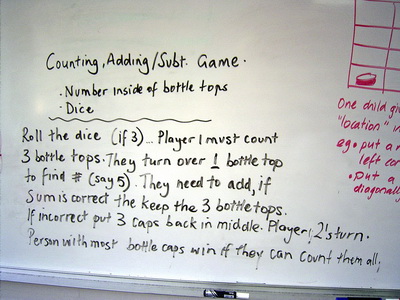 Counting, Adding/Subt. Game.
. Number inside of bottle tops
. Dice
Roll the dice (if 3)... Player 1 must count
3 bottle tops. They turn over 1 bottle top
to find # (say 5). They need to add, if
Sum is correct the keep the 3 bottle tops.
If incorrect put 3 caps back in middle. Player 2's turn.
Person with most bottle caps win if they can count them all.
One child giv
"location" in
eg. put a
left con
. put a
diagonally